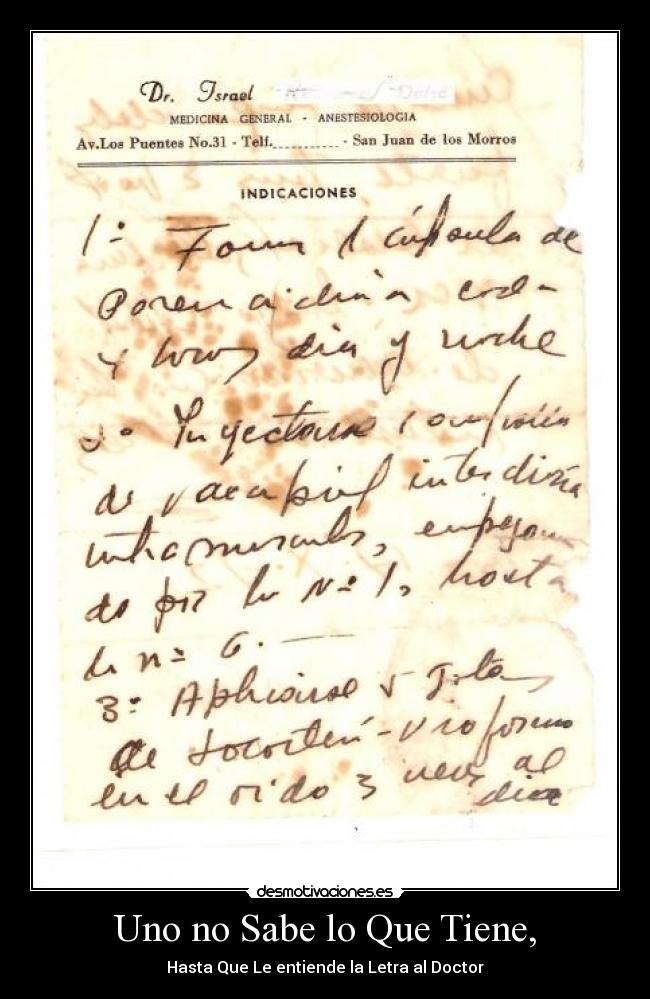 Dr. Israel
MEDICINA GENERAL - ANESTESIOLOGIA
Av.Los Puentes No.31 - Telf.
- San Juan de los Morros
INDICACIONES
1º Tomar 1 cápsula de
cada
4 horas día y noche
2º Inyectarse 1
de interdiaria
intramuscular, empezan
do por la Nº 1, hasta
la nº 6.
3º Aplicarse 5 gotas
de Locortén-Vioformo
en el oido 3 veces al
día
desmotivaciones.es
Uno no Sabe lo Que Tiene,
Hasta Que Le entiende la Letra al Doctor